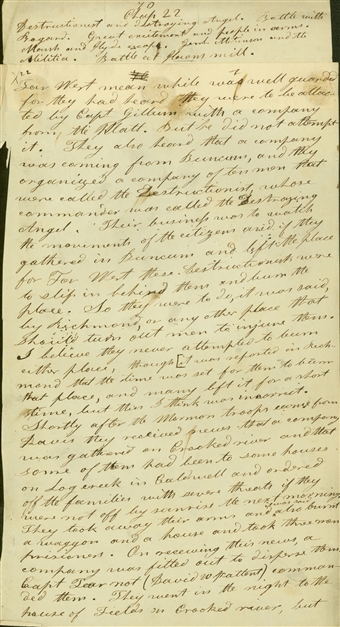 Chap. 22
Destructionist and Destroying Angel. Battle with
Bogard. Great excitement and people in arms.
Marsh and Hyde escape. Genl Atkinson and the
Militia. Battle at Hauns mill.
Far West mean while was well guarded
for they had heard they were to be attac
ted by Capt Gillium with a company
from the Platt. But he did not attempt
it. They also heard that a company
was coming from Buncum, and they
organized a company of ten men that
were called the Destructionist, whose
commander was called the Destroying
Angel. Their business was to watch
the movements of the citizens and if they
gathered in Buncum and left the place
for Far West these Destructionists were
to slip in behind them and burn the
place. So they were to do, it was said,
by Richmond, or any other place that
should turn out men to injure them.
I believe they never attempted to burn
either place, though it was reported in Rich
mond that the time was set for them to burn
that place, and many left it for a short
time, but this I think was incorrect.
Shortly after the Mormon troops came from
Davis they received news that a company
was gathered on Crooked river and that
some of them had been to some houses
on Log creek in Caldwell and ordered
off the families with severe threats if they
were not off by sunrise the next morning
They took away their arms and also burnt
a waggon and a house and took three men
prisoners. On receiving this news, a
company was fitted out to disperse them
Capt Fear not (David W Patten), comman
ded them. They went in the night to the
house of Fields on Crooked river, but